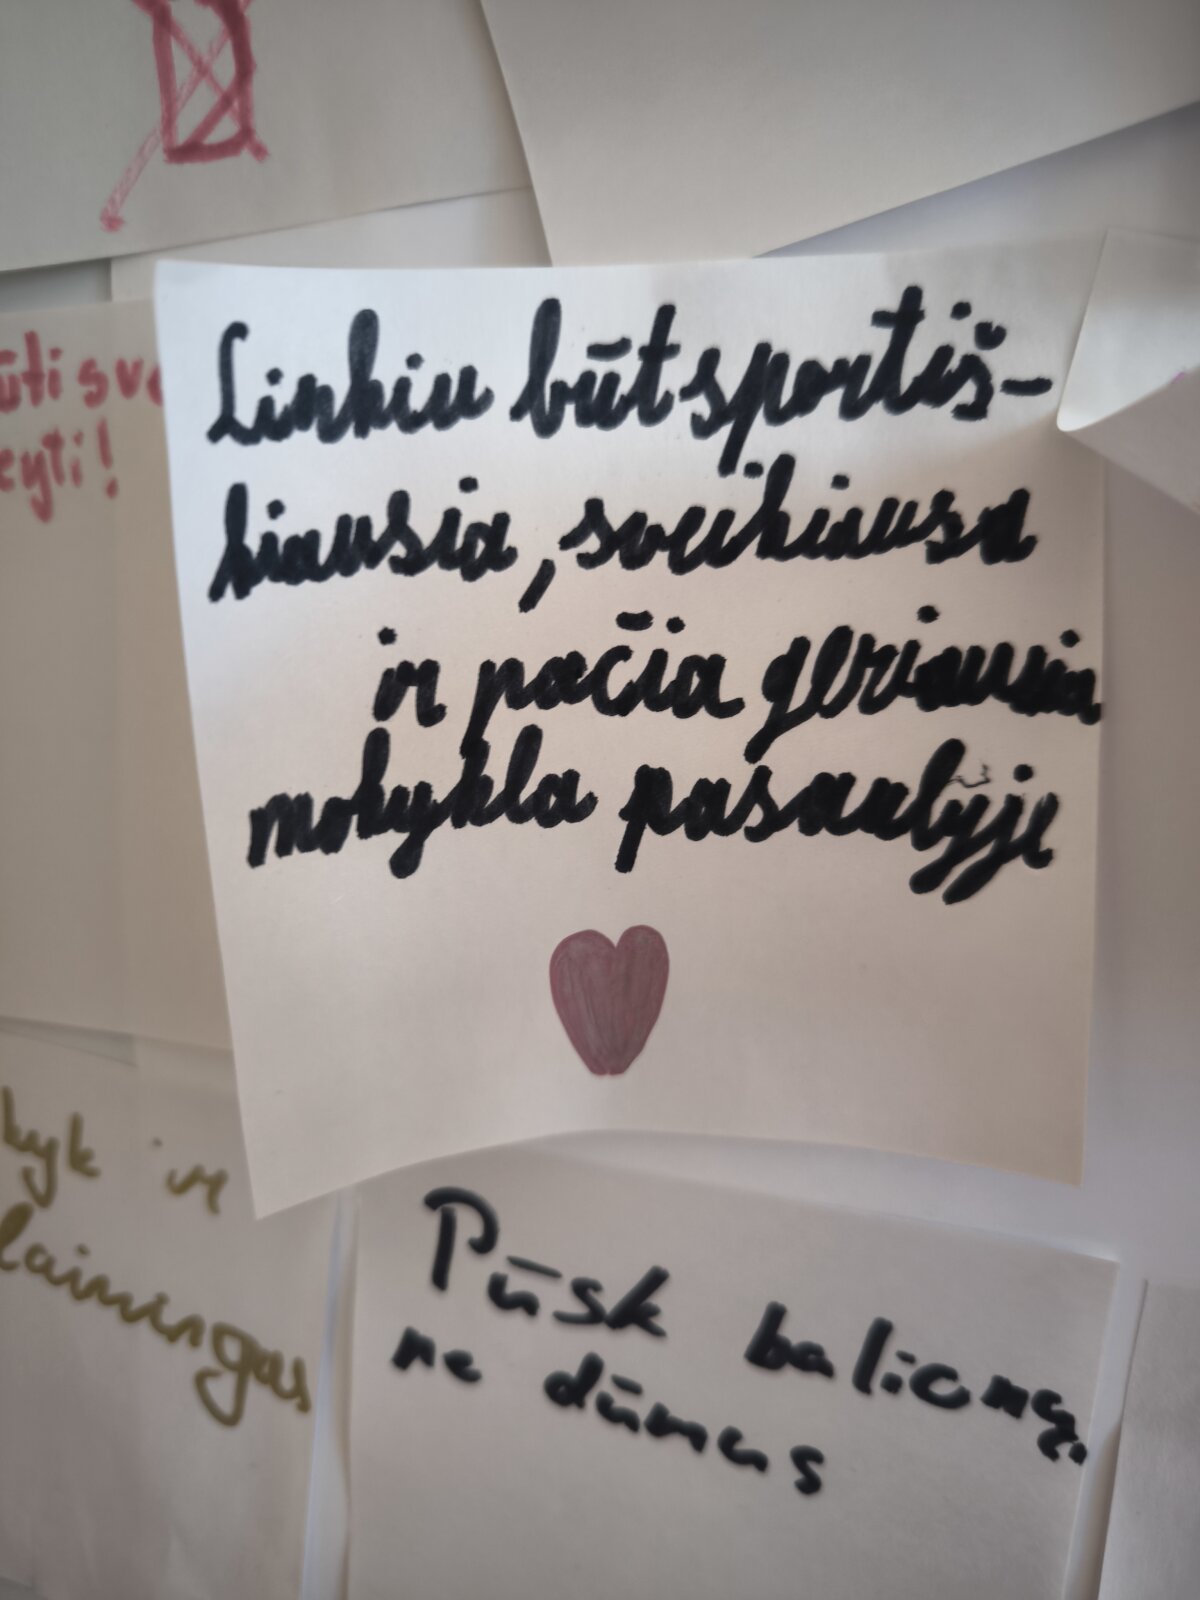 ūti sv
eyti!
Linkiu būt sportiš-
kiausia, sveikiausa
ir pačia geriausia
mokykla pasaulyje
kyk ir
laimingas
Pūsk balioną,
ne dūmus